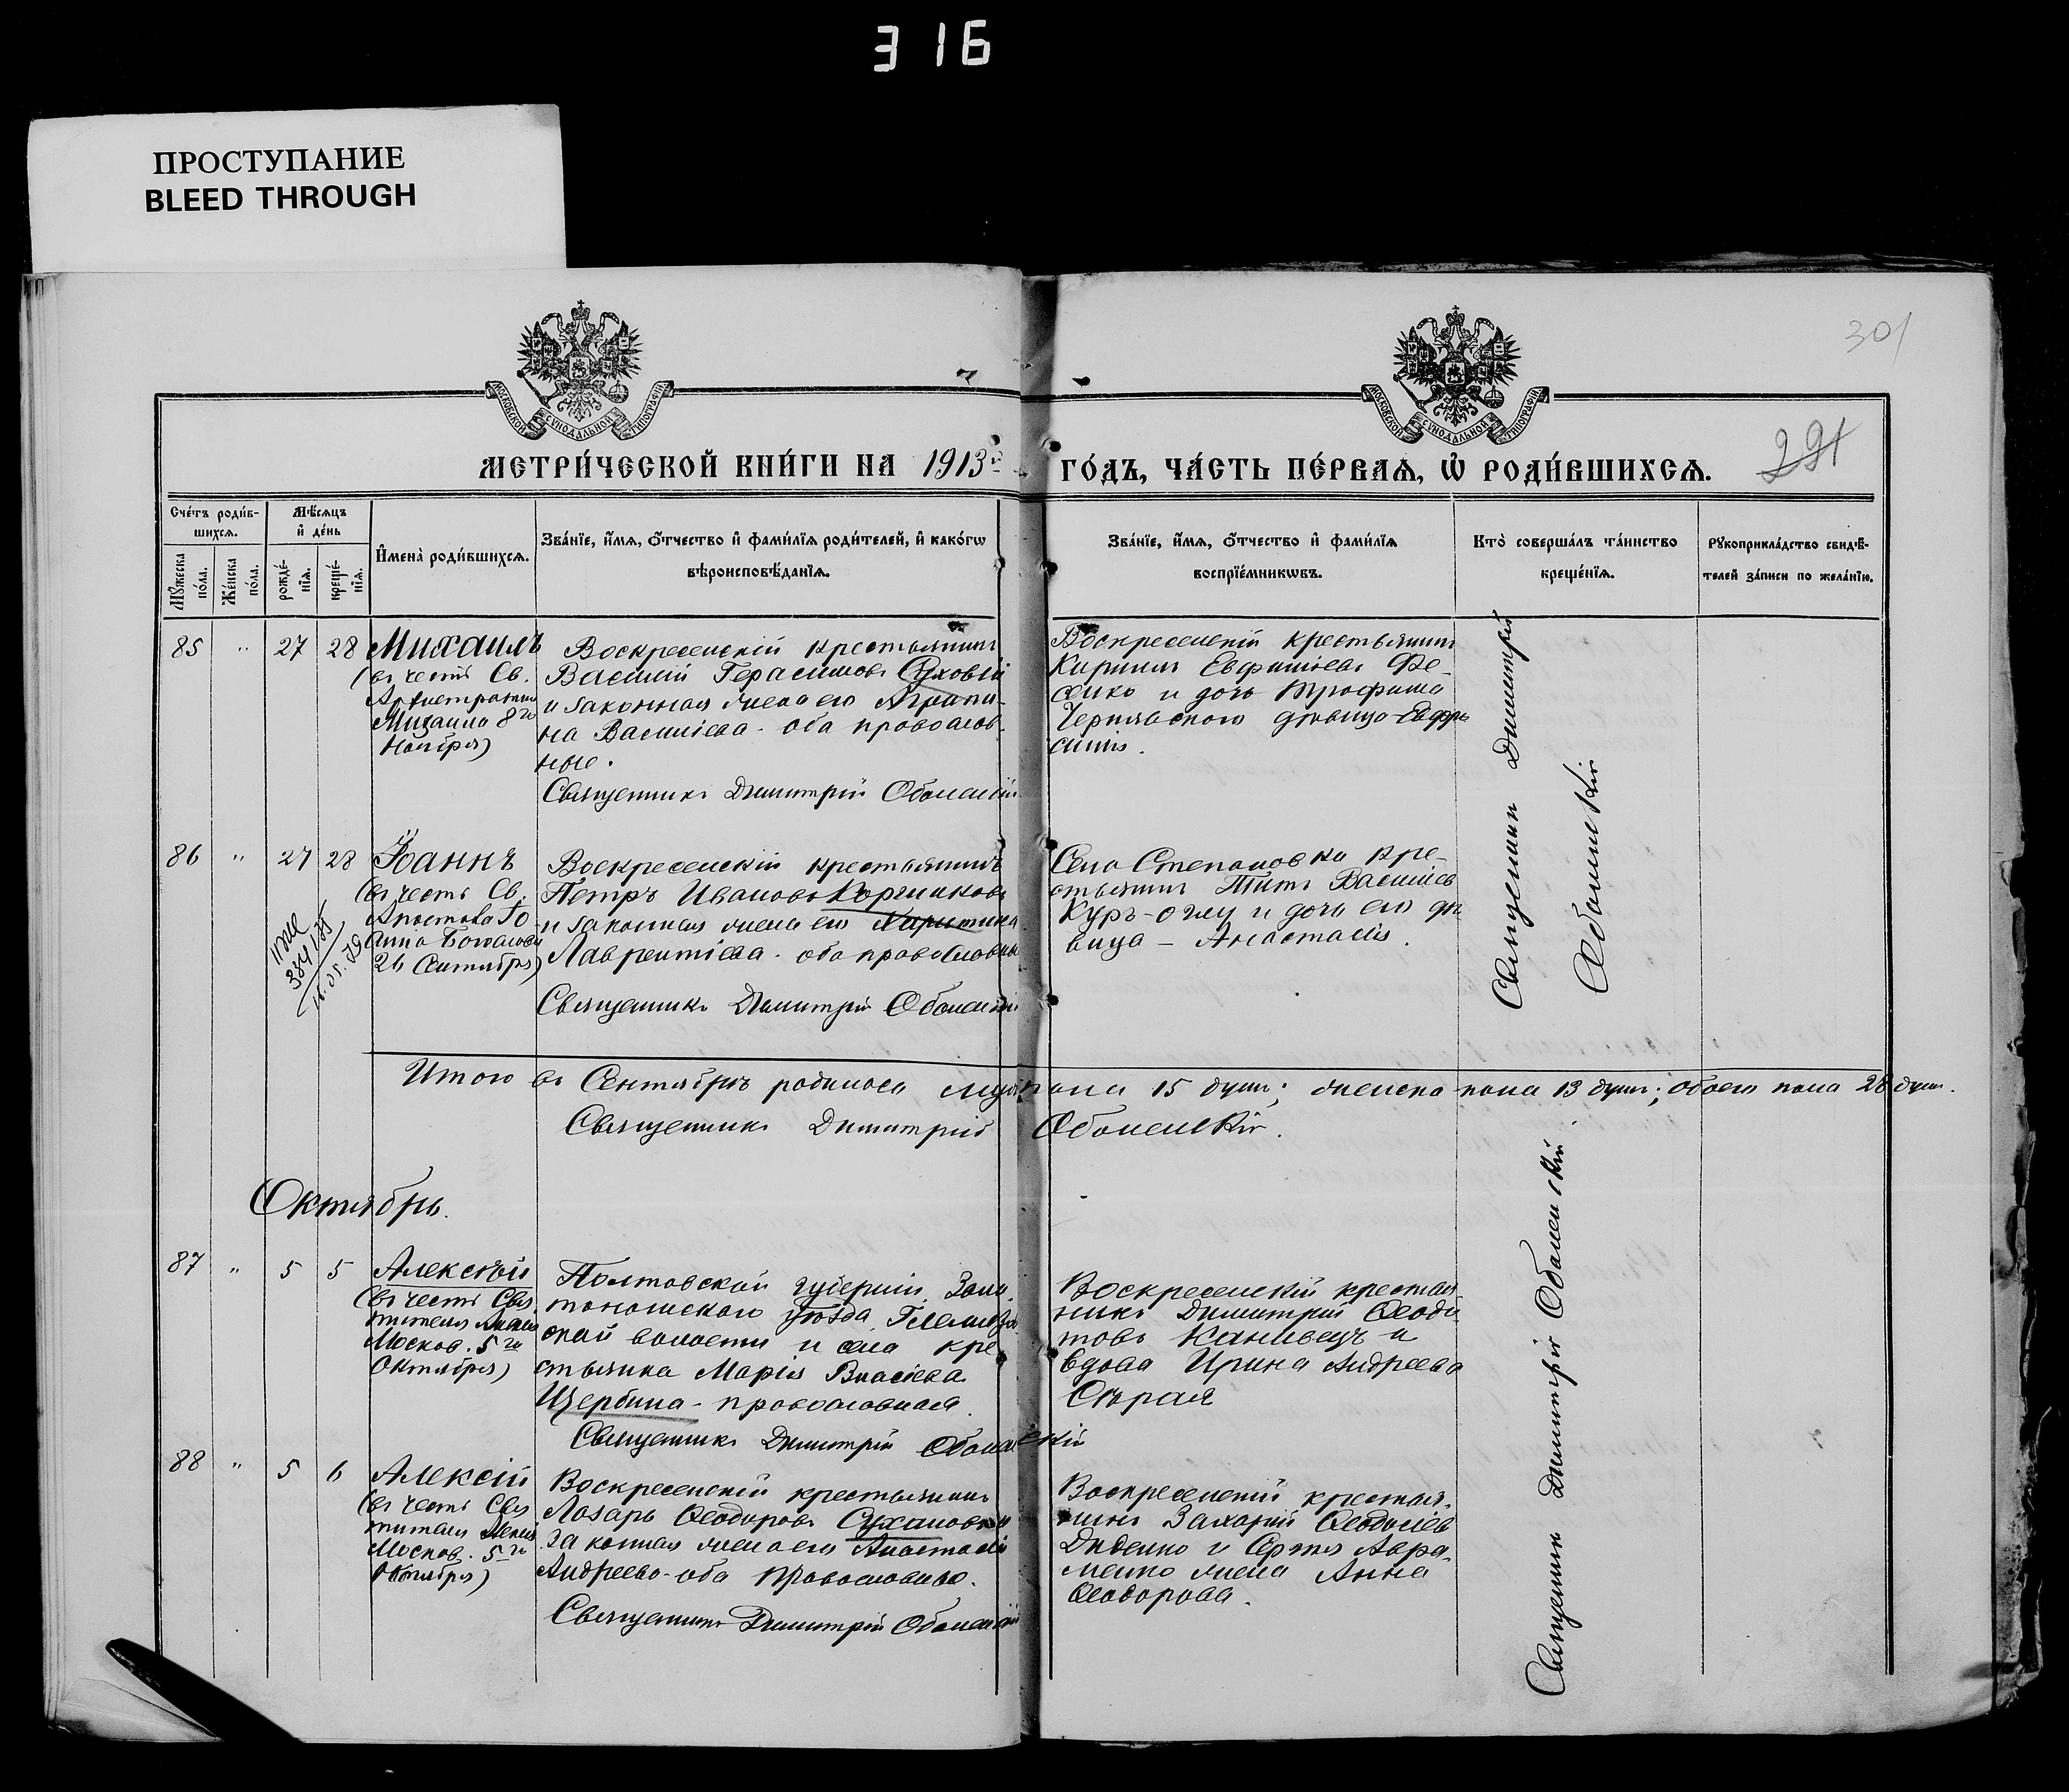 316
ПРОСТУПАНИЕ
BLEED THROUGH
301
МОСКОВСКОЙ СѴНОДАЛЬНОЙ ТИПОГРАФІИ
МОСКОВСКОЙ СѴНОДАЛЬНОЙ ТИПОГРАФІИ
МЕТРИ́ЧЕСКОЙ КНИ́ГИ НА 1913й ГО́ДЪ, ЧА́СТЬ ПЕ́РВАѦ, Ѡ҆ РОДИ́ВШИХСѦ.
291
Сче́тъ роди́в-
шихсѧ.
Мꙋжеска по́ла.
Же́нска по́ла.
Мѣ́сѧцъ
и҆ де́нь
рожде́-
нїѧ.
креще́-
нїѧ.
И҆мена̀ роди́вшихсѧ.
Зва́нїе, и҆́мѧ, ѻ҆́тчество и҆ фами́лїѧ роди́телей, и҆ како́гѡ
вѣроисповѣ́данїѧ.
Зва́нїе, и҆́мѧ, ѻ҆́тчество и҆ фами́лїѧ
воспрїе́мникѡвъ.
Кто̀ соверша́лъ та́инство
креще́нїѧ.
Рꙋкоприкла́дство свидѣ́-
телей за́писи по жела́нїю.
85 " 27 28 Михаилъ
(въ честь Св.
Архистратига
Михаила 8го
Ноября)
Воскресенскій крестьянинъ
Василій Герасимовъ Суховій
и законная жена его Агрипи-
на Василіева - оба православ-
ные.
Священникъ Димитрій Оболенскій
Воскресенскій крестьянинъ
Кириллъ Евфиміевъ Фе-
сенко и дочь Трофима
Чернявского дѣвица Евфро-
синія.
Священникъ Димитрій
Оболенскій
86 " 27 28 Іоаннъ
(въ честь Св.
Апостола Іо
анна Богослова
26 Сентября)
16.05.79
Воскресенскій крестьянинъ
Петръ Ивановъ Коржиковъ
и законная жена его Харитина
Лаврентіева - оба православные
Священникъ Димитрій Оболенскій
Села Степановки кре-
стьянинъ Титъ Василіев
Куръ-оглу и дочь его дѣ
вица - Анастасія.
Итого въ Сентябрѣ родилось муж. пола 15 душъ; женска пола 13 душъ; обоего пола 28 душ.
Священникъ Димитрій Оболенскій.
Октябрь.
87 " 5 5 Алексѣй
(въ честь Свя
тителя Алексія
Москов. 5го
Октября)
Полтавской губерніи, Золо
тоношского уѣзда, Гельмяз
ской волости и села кре
стьянка Марія Власіева
Щербина - православная.
Священникъ Димитрій Оболенскій
Воскресенскій крестья
нинъ Димитрій Ѳеодо
товъ Канивецъ и
вдова Ирина Андреева
Сѣрая
Священникъ Димитрій Оболенскій.
88 " 5 6 Алексій
(въ честь Свя
тителя Алексія
Москов. 5го
Октября)
Воскресенскій крестьянинъ
Лазарь Ѳеодоровъ Сухановъ и
законная жена его Анастасія
Андреева - оба православные.
Священникъ Димитрій Оболенскій
Воскресенскій крестья-
нинъ Захарій Ѳеодосіев
Диденко и Сергія Авра-
менко жена Анна
Ѳеодорова.